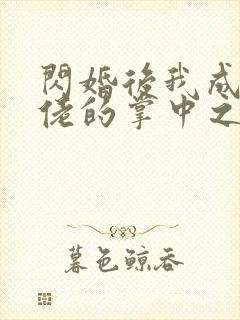 閃婚後我成
佬的掌中之
暮色鲸吞